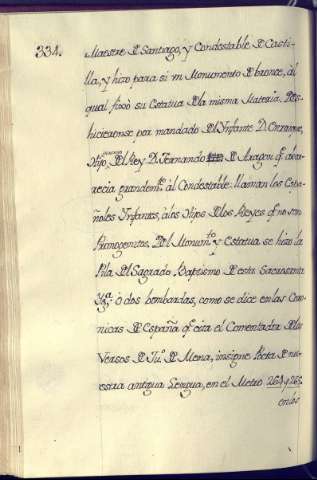 334. Maestre de Santiago, y Condestable de Casti-
lla, y hizo para si vn Monumento de bronce, al
qual fixò su Estatua de la misma Materia. Des-
hicieronse por mandado del Ynfante D. Enrrique,
Hijo del Rey D. Fernando de Aragon q.e abor-
recia grandem.te àl Condestable: llaman los Espa-
ñoles Ynfantes, à los Hijos de los Reyes q.e no son
Primogenitos. Del Monum.to y Estatua se hizo la
Pila del Sagrado Baptismo de esta Sacrosanta
Yg.a ò dos bombardas, como se dice en las Cro-
nicas de España q.e cita el Comentador de los
Versos de Ju.o de Mena, insigne Poeta de nu-
estra antigua Lengua, en el Metro 264 y 265
en los